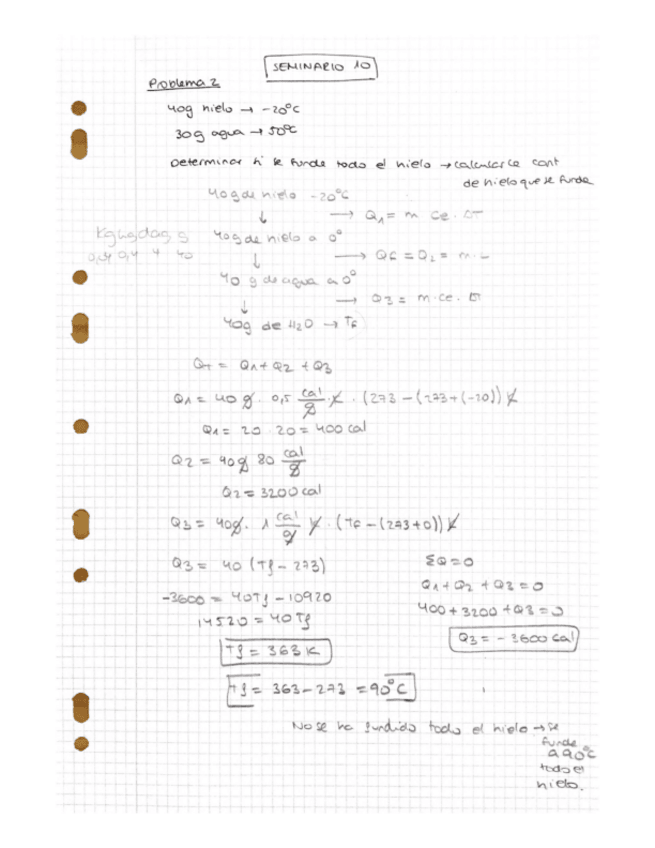 SEMINARIO 10
Problema 2
40g hielo → -20ºC
30g agua → 50ºC
Determinar si se funde todo el hielo → calcularse cant
de hielo que se funde
40g de hielo -20ºC
↓ → Q1 = m ce. ΔT
Kg hg dag g 40g de hielo a 0º
0,04 0,4 4 40 ↓ → Qf = Q2 = m·L
40 g de agua a 0º
↓ → Q3 = m·ce. Δt
40g de H2O → Tf
QT = Q1 + Q2 + Q3
Q1 = 40 g · 0,5 cal/g·K · (273 - (273+(-20))) K
Q1 = 20 · 20 = 400 cal
Q2 = 40g 80 cal/g
Q2 = 3200 cal
Q3 = 40g · 1 cal/g K · (Tf - (273+0)) K
Q3 = 40 (Tf - 273) ΣQ = 0
-3600 = 40Tf - 10920 Q1 + Q2 + Q3 = 0
14520 = 40Tf 400 + 3200 + Q3 = 0
Tf = 363 K Q3 = - 3600 cal
Tf = 363 - 273 = 90ºC
No se ha fundido todo el hielo → se
funde
a 90ºC
todo el
hielo.